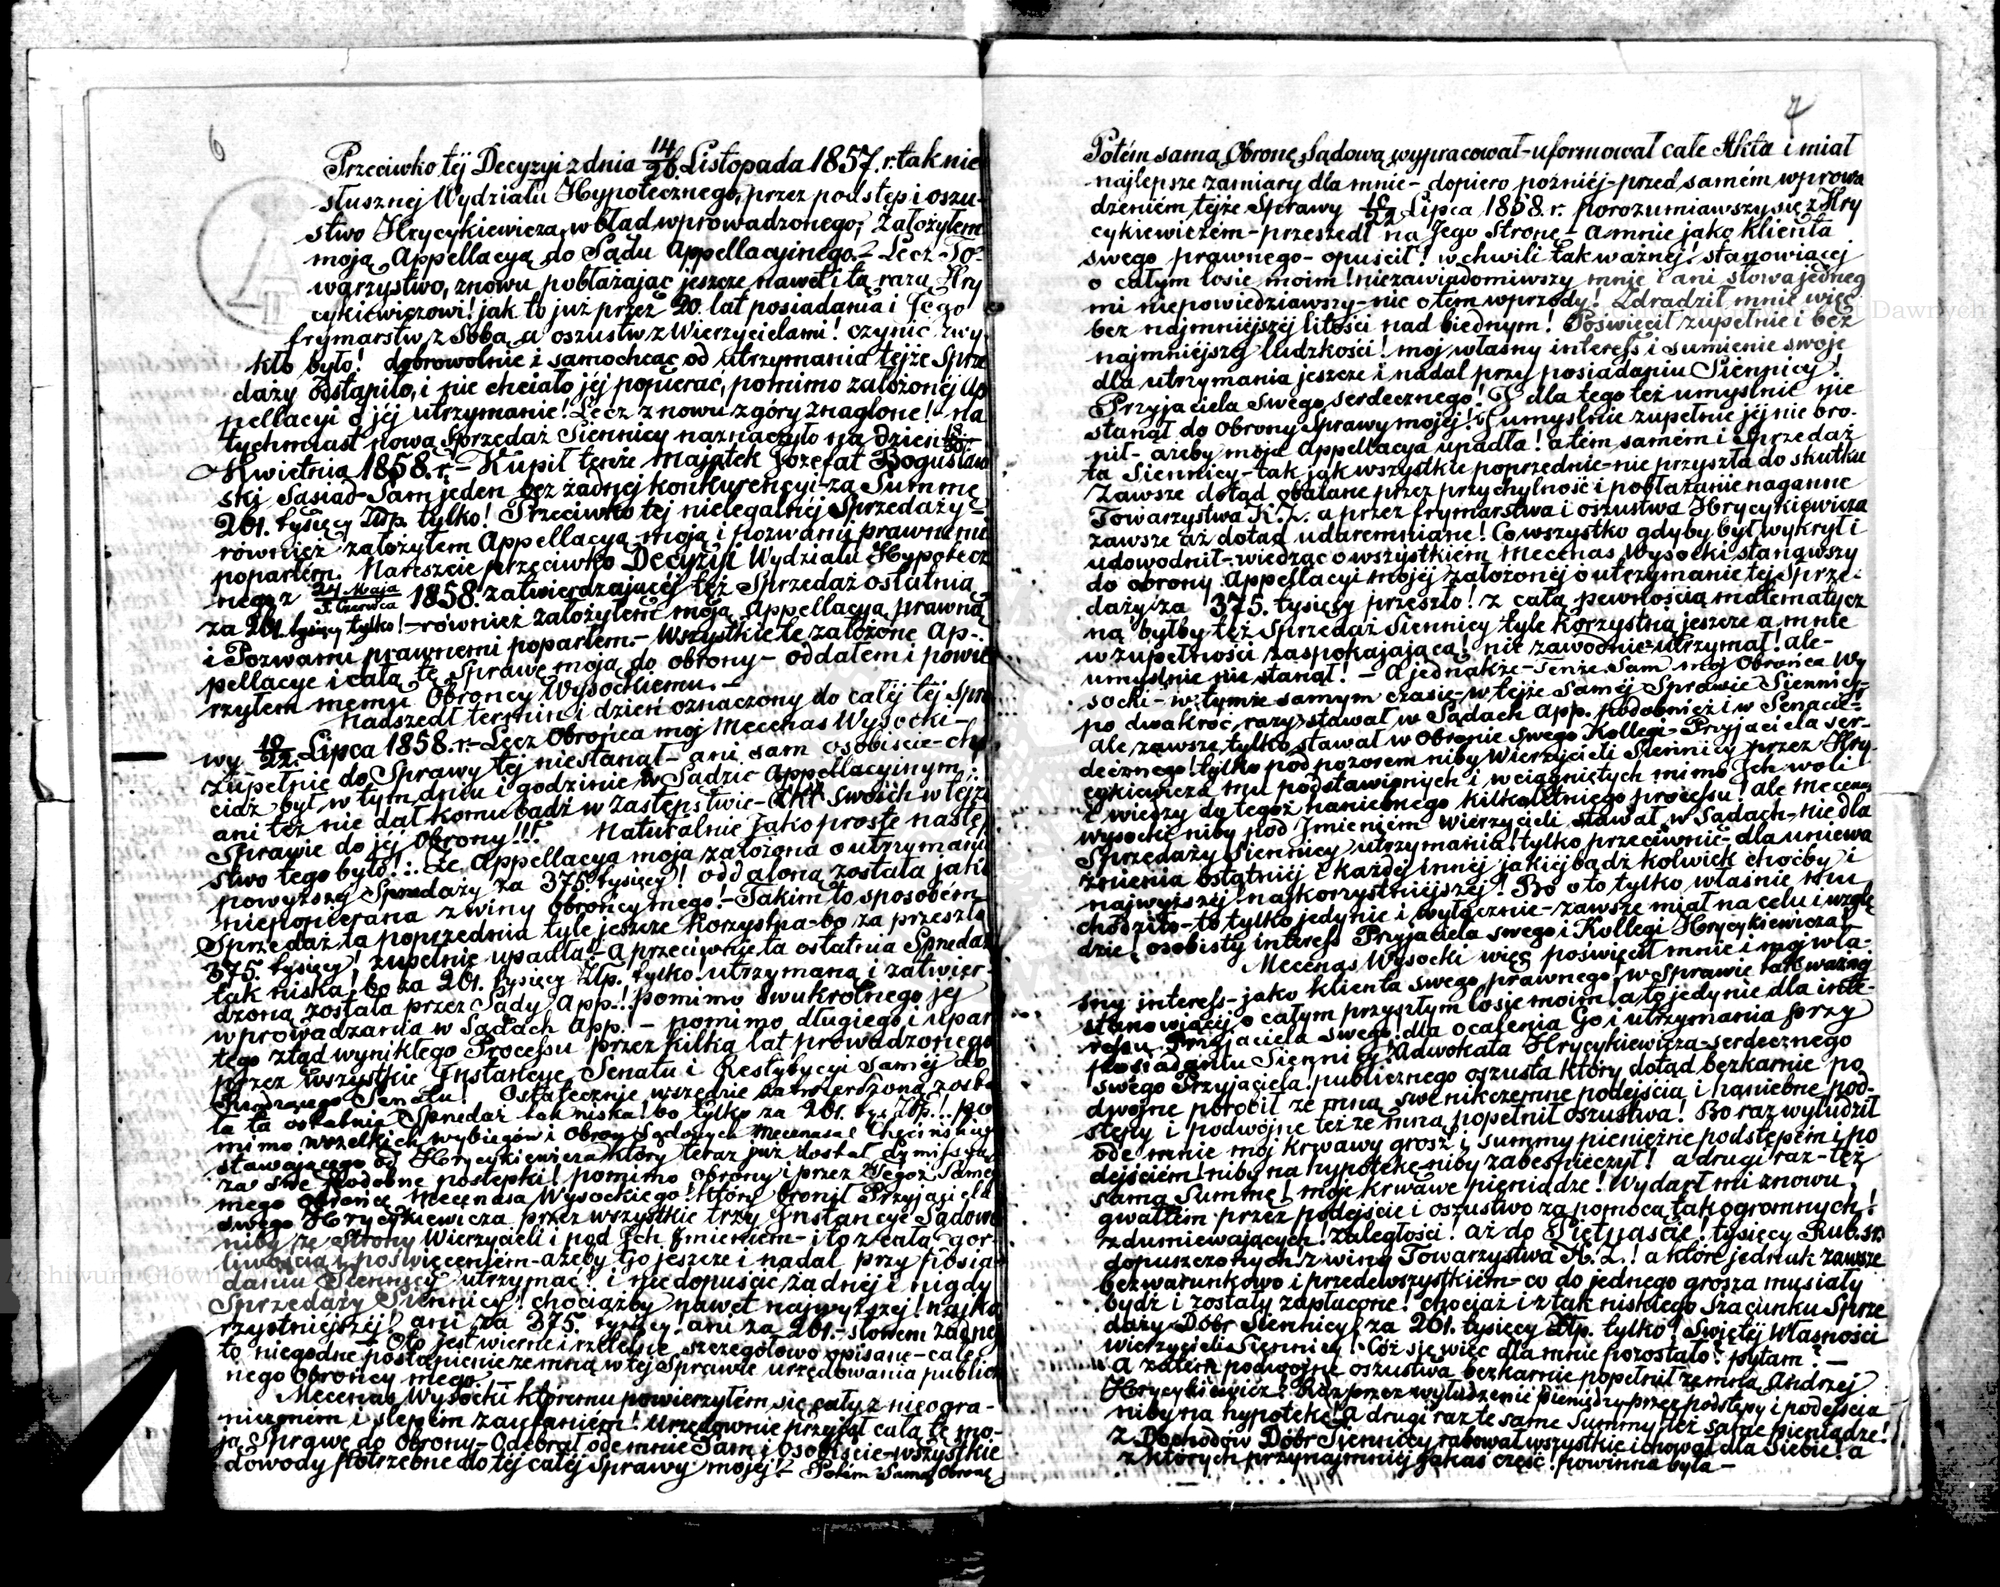 6
Przeciwko téj Decyzyi z dnia 14/26 Listopada 1857. r. tak nie
słusznej Wydziału Hypotecznego, przez podstęp i oszu-
stwo Hrycykiewicza, w błąd wprowadzonego, Założyłem
moją Appellacyą do Sądu Appellacyinego. – Lecz – To-
warzystwo, znowu pobłażając jeszcze nawet i tą razą Hry
cykiewiczowi! jak to już przez 20. lat posiadania i Jego
frymarstw z Sobą, a oszustw z Wierzycielami! czynić zwy-
kło było! dobrowolnie i samochcąc od utrzymania tejże Sprze
daży odstąpiło, i nie chciało jéj popierać, pomimo założonej Ap
pellacyi o jéj utrzymanie! Lecz znowu z góry znaglone! – na
tychmiast nową Sprzedaż Siennicy naznaczyło na dzień
Kwietnia 1858. r. – Kupił tenże majątek Jozefat Bogusław
ski Sąsiad – Sam jeden bez żadnej konkurencyi – za Summę
201. tysięcy Złp. tylko! Przeciwko tej nielegalnéj Sprzedaży –
również założyłem Appellacyą moją i Pozwami prawnemi
poparłem. Nareszcie przeciwko Decyzyi Wydziału Hypotecz
nego z 24 Maja/5 Czerwca 1858. zatwierdzającéj też Sprzedaż ostatnią
za 201. tysięcy tylko! – również założyłem moją Appellacyą prawną
i Pozwami prawnemi poparłem. – Wszystkie te założone Ap-
pellacye i całą tę Sprawę moją do obrony – oddałem i powie
rzyłem memu Obrońcy Wysockiemu. –
Nadszedł termin i dzień oznaczony do całéj téj Spra
wy 10/22 Lipca 1858. r. – Lecz Obrońca mój Mecenas Wysocki –
zupełnie do Sprawy téj niestanął – ani sam osobiście – cho
ciaż był w tym dniu i godzinie w Sądzie Appellacyinym!
ani też nie dał komu bądź w zastępstwie – Akt swoich w tejże
Sprawie do jéj Obrony!!! Naturalnie jako proste nastę
stwo tego było! : że Appellacya moja założona o utrzymani
powyższej Sprzedaży za 375. tysięcy! oddaloną została jako
niepopierana z winy Obrońcy mego! – Takim to sposobem
Sprzedaż ta poprzednia tyle jeszcze Korzystna – bo za przeszło
375. tysięcy! zupełnie upadła! – a przeciwnie ta ostatnia Sprzedaż
tak niska! bo za 201. tysięcy Złp. tylko! utrzymaną i zatwier-
dzoną została przez Sądy App.! pomimo dwukrotnego jej
wprowadzania w Sądach App.! – pomimo długiego i upar
tego ztąd wynikłego Processu przez kilka lat prowadzonego
przez wszystkie Instancye Senatu i Restytycyi Saméj do
Rządzącego Senatu! Ostatecznie wszędzie zatwierdzoną zosta
ła ta ostatnia Sprzedaż tak niska! bo tylko za 201. tys. Złp.! po
mimo wszelkich wybiegów i Obron Sądowych Mecenasa Chęcińskieg
stawającego od Hrycykiewicza który teraz już dostał dymissyą
za swe podobne postępki! pomimo obrony i przez Tegoż Same
mego Obrońcę Mecenasa Wysockiego! który bronił Przyjaciela
swego Hrycykiewicza przez wszystkie trzy Instancye Sądowe
niby ze Strony Wierzycieli i pod Ich Imieniem – i to z całą gor-
liwością i poświęceniem – ażeby Go jeszcze i nadal przy posia-
daniu Siennicy utrzymać! i niedopuścić żadnéj i nigdy
Sprzedaży Siennicy! chociażby nawet najwyższéj! najko
rzystniejszéj! ani za 375. tysięcy! ani za 201. – słowem żadnéj
Oto jest wiernie i rzetelnie szczegółowo opisane – całe
to niegodne postąpienie ze mną w téj Sprawie urzędowania publicz
nego Obrońcy mego.
Mecenas Wysocki któremu powierzyłem się cały z nieogra-
niczonem i ślepém zaufaniem! Urzędownie przyjął całą tę mo-
ją Sprawę do Obrony – Odebrał odemnie Sam i Osobiście – wszystkie
dowody potrzebne do téj całéj Sprawy mojéj! – Potém Samą Obronę
7
Potém samą Obronę Sądową wypracował – uformował całe Akta i miał
najlepsze zamiary dla mnie – dopiero pożniéj – przed samém wprowa
dzeniém tejże Sprawy 10/22 Lipca 1858. r. porozumiawszy się z Hry
cykiewiczem – przeszedł na Jego Stronę – a mnie jako klienta
swego prawnego – opuścił! w chwili tak ważnéj! stanowiącéj
o całym losie moim! niezawiadomiwszy mnie i ani słowa jedneg
mi niepowiedziawszy – nic o tém wprzódy! Zdradził mnie więc
bez najmniejszéj litości nad biednym! Poświęcił zupełnie i bez
najmniejszéj ludzkości! mój własny interess i sumienie swoje
dla utrzymania jeszcze i nadal przy posiadaniu Siennicy!
Przyjaciela swego serdecznego! I dla tego też umyślnie nie
stanął do Obrony Sprawy mojéj! i umyślnie zupełnie jéj nie bro-
nił – ażeby moja Appellacya upadła! a tém samém i Sprzedaż
ta Siennicy – tak jak wszystkie poprzednie – nie przyszła do skutku
Zawsze dotąd obalane przez przychylność i pobłażanie naganne
Towarzystwa K.Z. a przez frymarstwa i oszustwa Hrycykiewicza
zawsze aż dotąd udaremniane! Co wszystko gdyby był wykrył i
udowodnił – wiedząc o wszystkiém Mecenas Wysocki stanąwszy
do obrony Appellacyi mojéj założonéj o utrzymanie téj Sprze-
daży za 375. tysięcy przeszło! z całą pewnością matematycz
ną byłby też Sprzedaż Siennicy tyle korzystną jeszcze a mnie
w zupełności zaspokajającą! niezawodnie utrzymał! ale –
umyślnie nie stanął! – A jednakże – Tenże Sam mój Obrońca Wy
socki – w tymże samym czasie – w tejże Saméj Sprawie Siennicy –
po dwakroć razy stawał w Sądach App. podobnież i w Senacie –
ale zawsze tylko stawał w Obronie swego Kollegi – Przyjaciela ser-
decznego! tylko pod pozorem niby Wierzycieli Siennicy przez Hry-
cykiewicza mu podstawionych i wciągniętych mimo Ich woli
i wiedzy do tegoż haniebnego kilkoletniego processu! ale Mecenas
Wysocki niby pod Imieniém Wierzycieli stawał w Sądach – nie dla
Sprzedaży Siennicy utrzymania! tylko przeciwnie – dla uniewa
żnienia ostatniéj i każdéj innéj jakiéjbądź kolwiek choćby i
najwyższéj! najkorzystniejszéj! Bo o to tylko właśnie mu
chodziło – to tylko jedynie i wyłącznie – zawsze miał na celu i wzglę
dzie! osobisty interess Przyjaciela swego i Kollegi Hrycykiewicza!
Mecenas Wysocki więc poświęcił mnie i mój wła-
sny interess – jako klienta swego prawnego! w Sprawie tak ważnéj
stanowiącéj o całym przyszłym losie moim! a to jedynie dla inte-
ressu Przyjaciela swego! dla ocalenia Go i utrzymania przy
posiadaniu Siennicy! Adwokata Hrycykiewicza – serdecznego
swego Przyjaciela! publicznego oszusta który dotąd bezkarnie po
dwójne porobił ze mną swe nikczemne podejścia i haniebne pod-
stępy i podwójne też ze mną popełnił oszustwa! Bo raz wyłudził
ode mnie mój krwawy grosz i summy pieniężne podstępem i po
dejściem! niby na hypotekę niby zabespieczył! a drugi raz – też
samą Summę! moje krwawe pieniądze! Wydarł mi znowu
gwałtem przez podejście i oszustwo za pomocą tak ogromnych!
zdumiewających! zaległości! aż do Piętnaście! tysięcy Rub. sr.
dopuszczonych z winy Towarzystwa K.Z.! a które jednak zawsze
bezwarunkowo i przedewszystkiém – co do jednego grosza musiały
bydź i zostały zapłacone! chociaż i z tak niskiego Szacunku Sprze
daży Dóbr Siennicy! za 201. tysięcy Złp. tylko! Swiętéj Własności
wierzycieli Siennicy! Cóż się więc dla mnie pozostało? pytam! –
A zatém podwójne oszustwa bezkarnie popełnił ze mną Andrzej
Hrycykiewicz? Raz przez wyłudzenie pieniędzy przez podstępy i podejścia
niby na hypotekę! a drugi raz te same Summy też same pieniądze!
z Dochodów Dóbr Siennicy rabował wszystkie i chował dla Siebie! a
z których przynajmniéj jakaś część! powinna była –